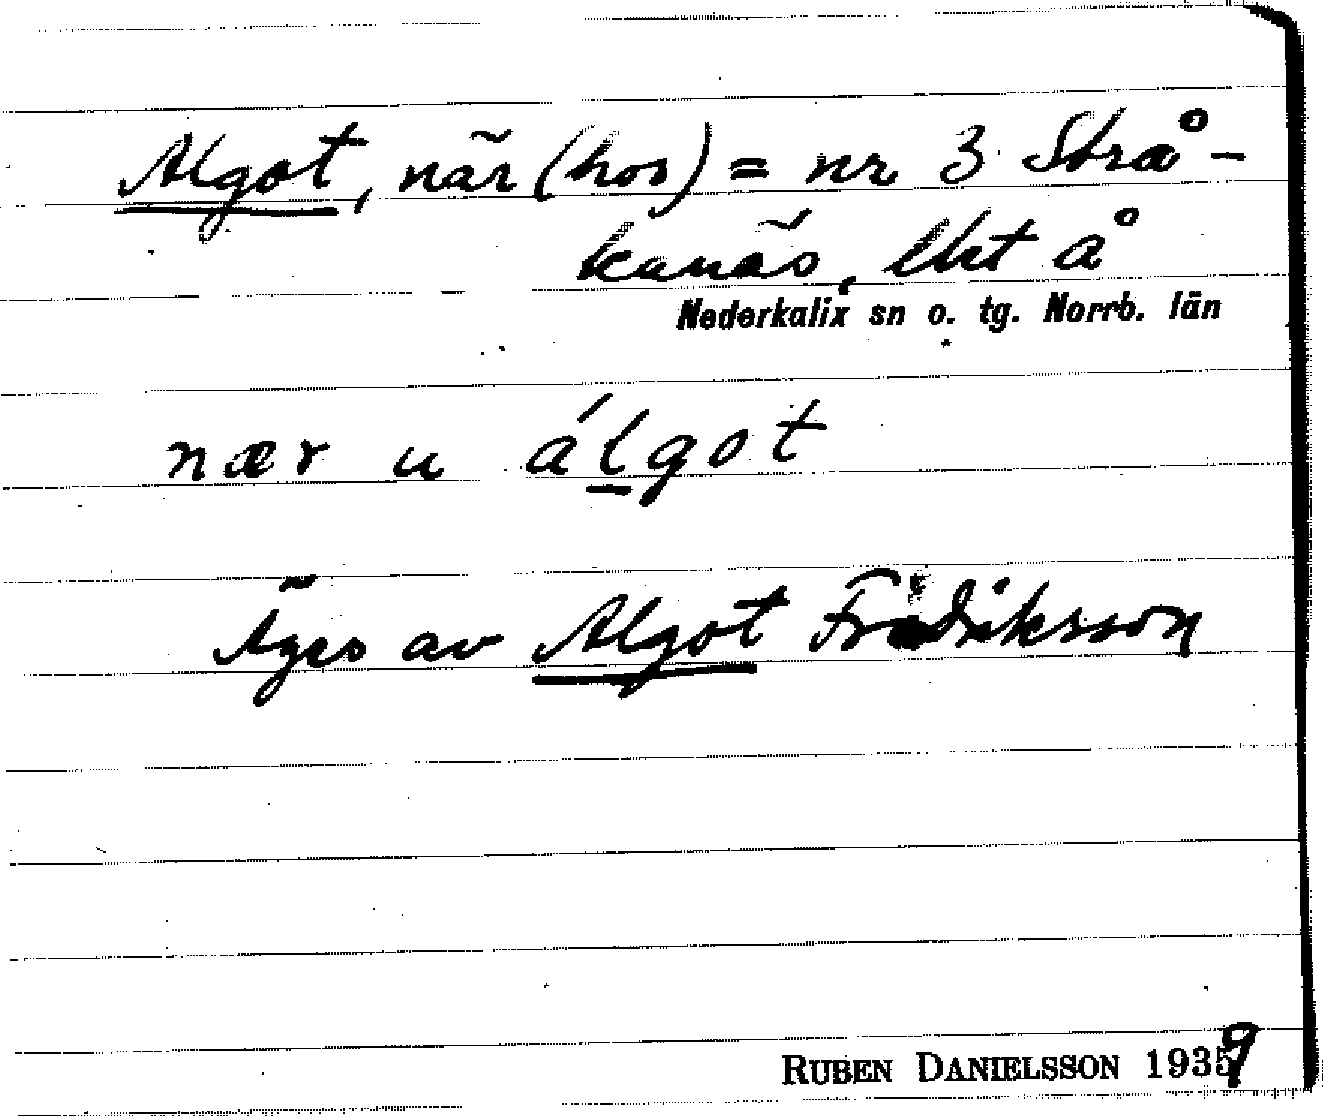 Algot, när (hos) = nr 3 Strå-
kanäs, lht å
Nederkalix sn o. tg. Norrb. län
nær u álgot
Äges av Algot Fridriksson
RUBEN DANIELSSON 1939